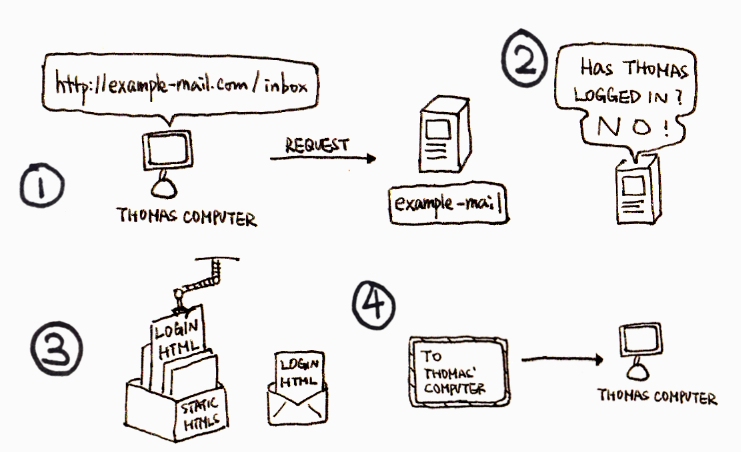 1
http://example-mail.com/inbox
REQUEST
THOMAS COMPUTER
example-mail
2
HAS THOMAS
LOGGED IN?
NO!
3
LOGIN
HTML
STATIC
HTMLS
LOGIN
HTML
4
TO
THOMAS'
COMPUTER
THOMAS COMPUTER